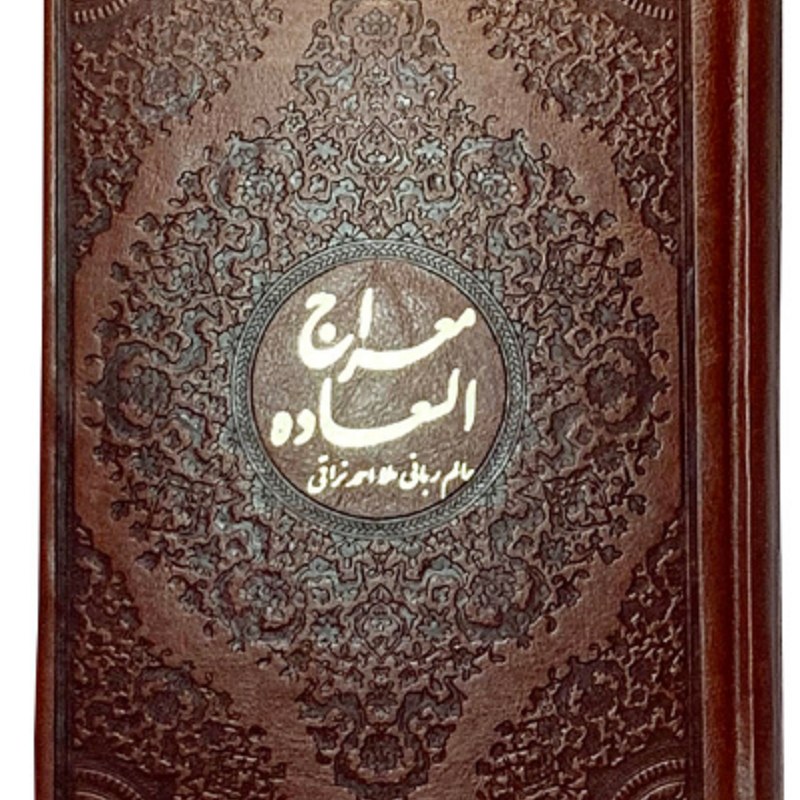 معراج
السعاده
عالم ربانی ملا احمد نراقی